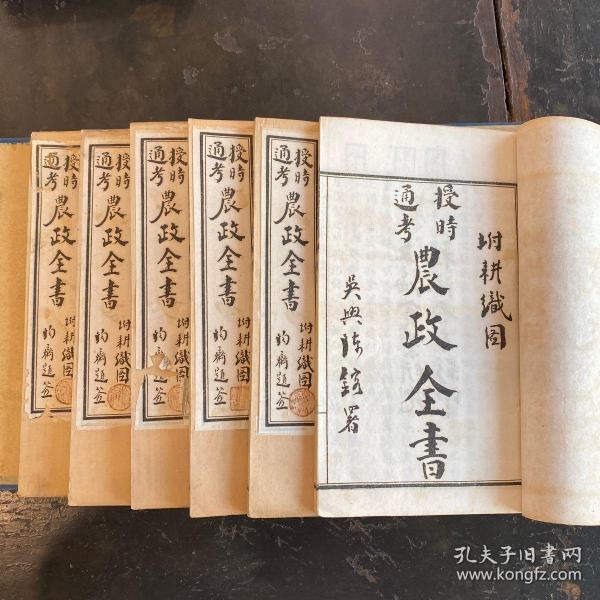 授時
通考
農政全書
坿耕織圖
吳興陳
署
授時
通考
農政全書
坿耕織圖
題签
授時
通考
農政全書
坿耕織圖
題签
授時
通考
農政全書
坿耕織圖
題签
授時
通考
農政全書
坿耕織圖
題签
授時
通考
農政全書
坿耕織圖
題签
孔夫子旧书网
www.kongfz.com